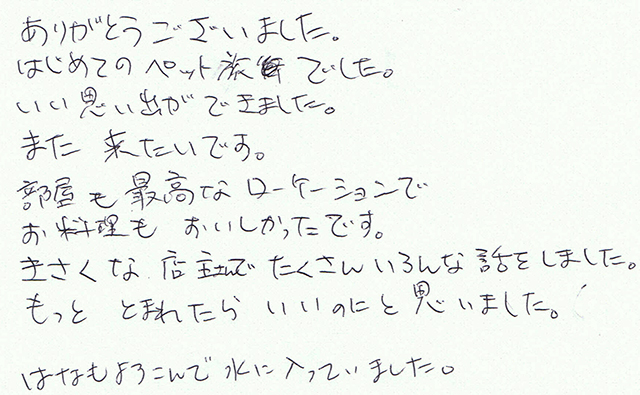 ありがとうございました。
はじめてのペット旅行でした。
いい思い出ができました。
また 来たいです。
部屋も最高なローケーションで
お料理も おいしかったです。
きさくな 店主さんで たくさんいろんな話をしました。
もっと とまれたら いいのにと思いました。
はなもよろこんで水に入っていました。